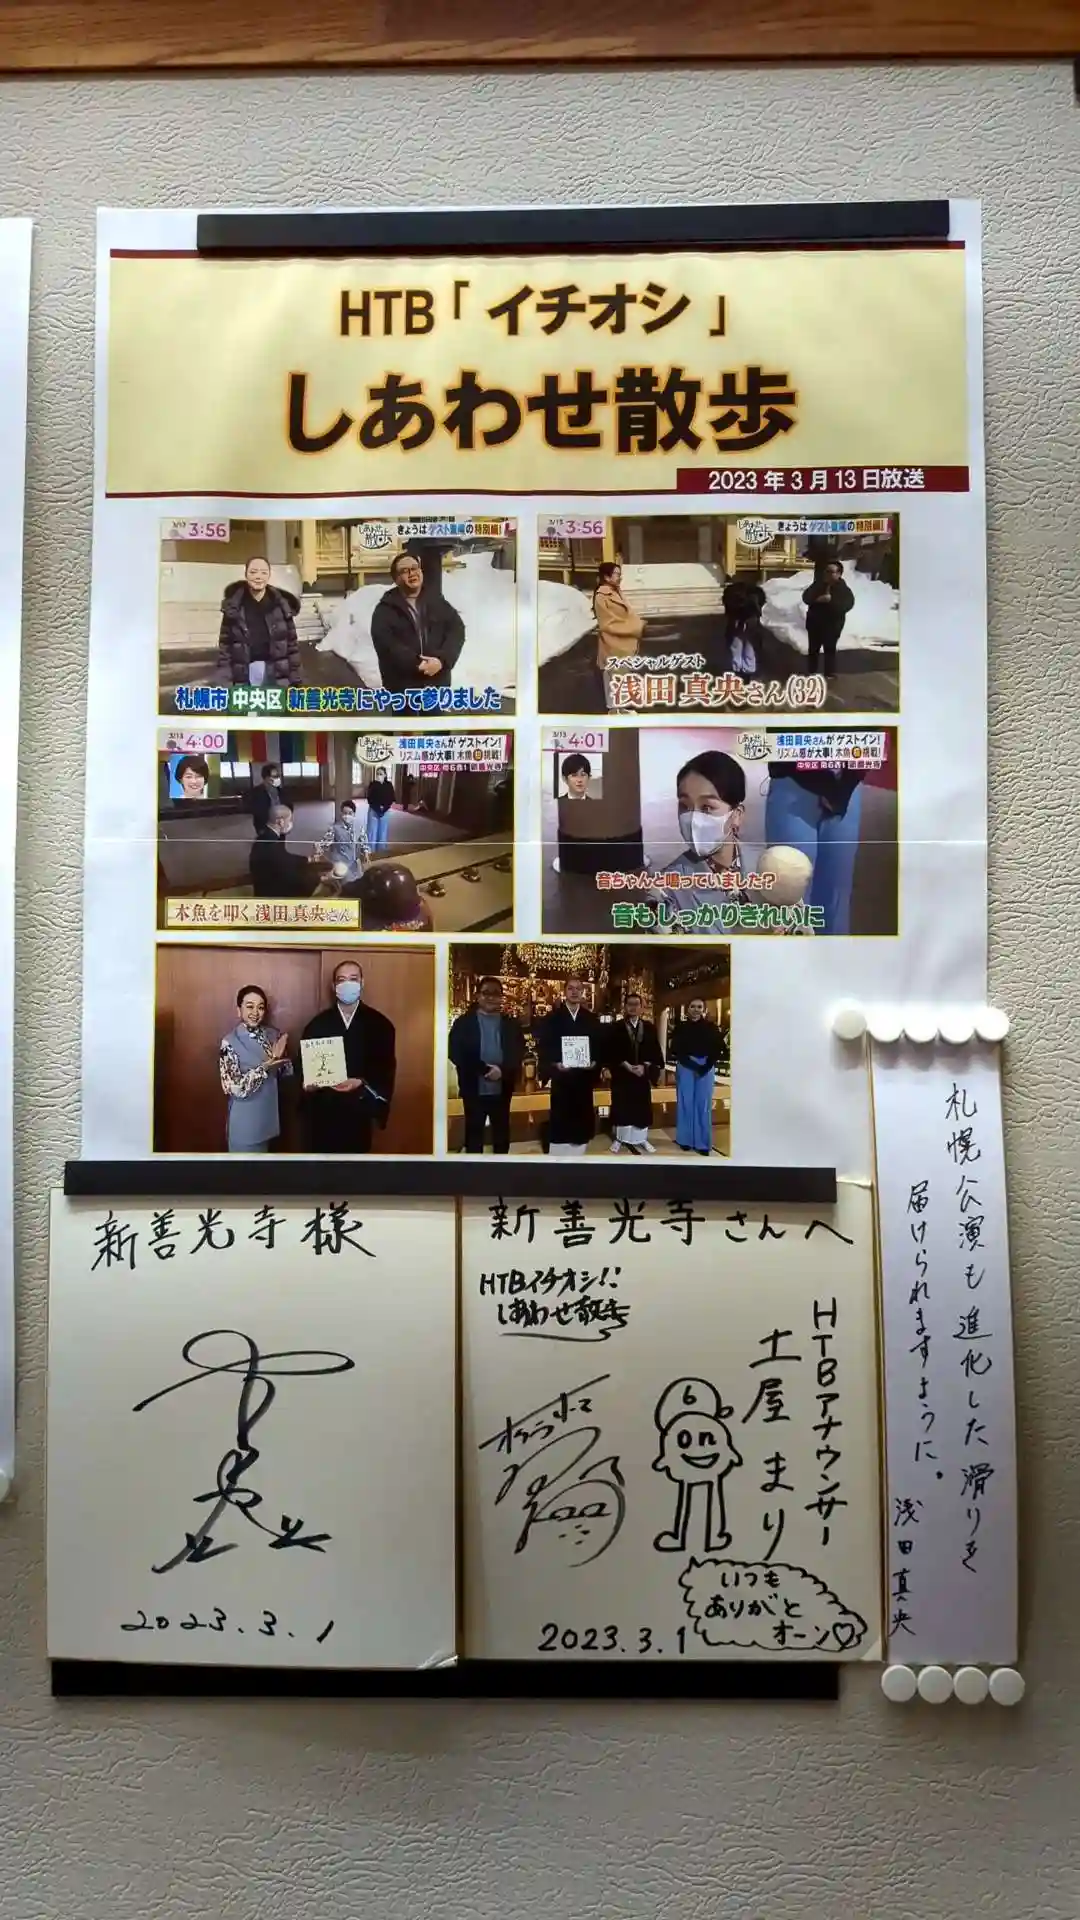 HTB「イチオシ」
しあわせ散歩
2023年3月13日放送
3/13 3:56
しあわせ散歩
きょうはゲスト登場の特別編!
札幌市 中央区 新善光寺にやって参りました
3/13 3:56
しあわせ散歩
きょうはゲスト登場の特別編!
スペシャルゲスト
浅田真央さん(32)
3/13 4:00
しあわせ散歩
浅田真央さんがゲストイン!
リズム感が大事!木魚初挑戦!
中央区 南6西1 新善光寺
木魚を叩く浅田真央さん
3/13 4:01
しあわせ散歩
浅田真央さんがゲストイン!
リズム感が大事!木魚初挑戦!
中央区 南6西1 新善光寺
音ちゃんと鳴っていました?
音もしっかりきれいに
新善光寺様
2023.3.1
新善光寺さんへ
HTBイチオシ!!
しあわせ散歩
HTBアナウンサー
土屋まり
オクラホマ
6
on
いつも
ありがと
オーン♡
2023.3.1
札幌公演も進化した滑りを
届けられますように。
浅田真央